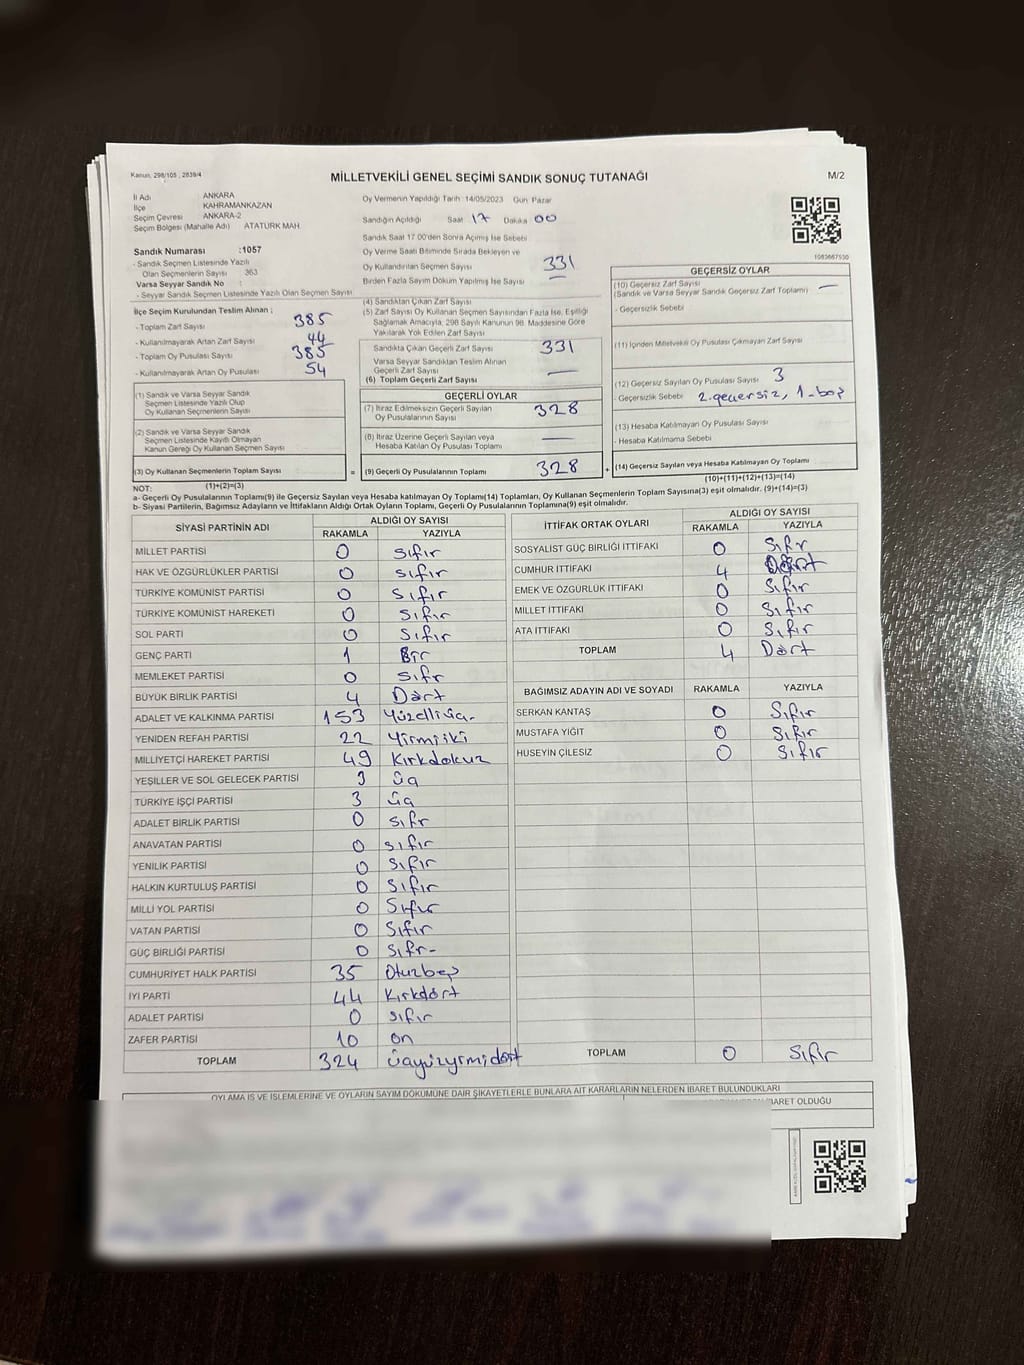 Kanun, 298/105 , 2839/4
MİLLETVEKİLİ GENEL SEÇİMİ SANDIK SONUÇ TUTANAĞI
M/2
İl Adı ANKARA
İlçe KAHRAMANKAZAN
Seçim Çevresi ANKARA-2
Seçim Bölgesi (Mahalle Adı) ATATÜRK MAH.
Sandık Numarası :1057
- Sandık Seçmen Listesinde Yazılı
Olan Seçmenlerin Sayısı 363
Varsa Seyyar Sandık No :
- Seyyar Sandık Seçmen Listesinde Yazılı Olan Seçmen Sayısı
İlçe Seçim Kurulundan Teslim Alınan ;
- Toplam Zarf Sayısı 385
- Kullanılmayarak Artan Zarf Sayısı 44
- Toplam Oy Pusulası Sayısı 385
- Kullanılmayarak Artan Oy Pusulası 54
(1) Sandık ve Varsa Seyyar Sandık
Seçmen Listesinde Yazılı Olup
Oy Kullanan Seçmenlerin Sayısı
(2) Sandık ve Varsa Seyyar Sandık
Seçmen Listesinde Kayıtlı Olmayan
Kanun Gereği Oy Kullanan Seçmen Sayısı
(3) Oy Kullanan Seçmenlerin Toplam Sayısı
(1)+(2)=(3)
Oy Vermenin Yapıldığı Tarih :14/05/2023 Gün Pazar
Sandığın Açıldığı Saat 17 Dakika 00
Sandık Saat 17.00'den Sonra Açılmış İse Sebebi
Oy Verme Saati Bitiminde Sırada Bekleyen ve
Oy Kullandırılan Seçmen Sayısı 331
Birden Fazla Sayım Döküm Yapılmış İse Sayısı —
(4) Sandıktan Çıkan Zarf Sayısı
(5) Zarf Sayısı Oy Kullanan Seçmen Sayısından Fazla İse, Eşitliği
Sağlamak Amacıyla, 298 Sayılı Kanunun 98. Maddesine Göre
Yakılarak Yok Edilen Zarf Sayısı
Sandıkta Çıkan Geçerli Zarf Sayısı 331
Varsa Seyyar Sandıktan Teslim Alınan
Geçerli Zarf Sayısı —
(6) Toplam Geçerli Zarf Sayısı
GEÇERLİ OYLAR
(7) İtiraz Edilmeksizin Geçerli Sayılan
Oy Pusulalarının Sayısı 328
(8) İtiraz Üzerine Geçerli Sayılan veya
Hesaba Katılan Oy Pusulası Toplamı —
= (9) Geçerli Oy Pusulalarının Toplamı 328 +
1083687530
GEÇERSİZ OYLAR
(10) Geçersiz Zarf Sayısı —
(Sandık ve Varsa Seyyar Sandık Geçersiz Zarf Toplamı)
- Geçersizlik Sebebi
(11) İçinden Milletvekili Oy Pusulası Çıkmayan Zarf Sayısı
(12) Geçersiz Sayılan Oy Pusulası Sayısı 3
- Geçersizlik Sebebi 2.geçersiz, 1-boş
(13) Hesaba Katılmayan Oy Pusulası Sayısı
- Hesaba Katılmama Sebebi
(14) Geçersiz Sayılan veya Hesaba Katılmayan Oy Toplamı
(10)+(11)+(12)+(13)=(14)
NOT:
a- Geçerli Oy Pusulalarının Toplamı(9) ile Geçersiz Sayılan veya Hesaba katılmayan Oy Toplamı(14) Toplamları, Oy Kullanan Seçmenlerin Toplam Sayısına(3) eşit olmalıdır. (9)+(14)=(3)
b- Siyasi Partilerin, Bağımsız Adayların ve İttifakların Aldığı Ortak Oyların Toplamı, Geçerli Oy Pusulalarının Toplamına(9) eşit olmalıdır.
SİYASİ PARTİNİN ADI ALDIĞI OY SAYISI
RAKAMLA YAZIYLA
MİLLET PARTİSİ 0 sıfır
HAK VE ÖZGÜRLÜKLER PARTİSİ 0 sıfır
TÜRKİYE KOMÜNİST PARTİSİ 0 sıfır
TÜRKİYE KOMÜNİST HAREKETİ 0 sıfır
SOL PARTİ 0 sıfır
GENÇ PARTİ 1 Bir
MEMLEKET PARTİSİ 0 sıfr
BÜYÜK BİRLİK PARTİSİ 4 Dört
ADALET VE KALKINMA PARTİSİ 153 Yüzelliüç-
YENİDEN REFAH PARTİSİ 22 Yirmiiki
MİLLİYETÇİ HAREKET PARTİSİ 49 Kırkdokuz
YEŞİLLER VE SOL GELECEK PARTİSİ 3 üç
TÜRKİYE İŞÇİ PARTİSİ 3 üç
ADALET BİRLİK PARTİSİ 0 sıfr
ANAVATAN PARTİSİ 0 sıfır
YENİLİK PARTİSİ 0 sıfır
HALKIN KURTULUŞ PARTİSİ 0 Sıfır
MİLLİ YOL PARTİSİ 0 Sıfır
VATAN PARTİSİ 0 Sıfır
GÜÇ BİRLİĞİ PARTİSİ 0 Sıfr-
CUMHURİYET HALK PARTİSİ 35 Otuzbeş
İYİ PARTİ 44 Kırkdört
ADALET PARTİSİ 0 sıfır
ZAFER PARTİSİ 10 on
TOPLAM 324 üçyüzyirmidört
İTTİFAK ORTAK OYLARI ALDIĞI OY SAYISI
RAKAMLA YAZIYLA
SOSYALİST GÜÇ BİRLİĞİ İTTİFAKI 0 Sıfr
CUMHUR İTTİFAKI 4 Dört
EMEK VE ÖZGÜRLÜK İTTİFAKI 0 Sıfır
MİLLET İTTİFAKI 0 Sıfır
ATA İTTİFAKI 0 Sıfır
TOPLAM 4 Dört
BAĞIMSIZ ADAYIN ADI VE SOYADI RAKAMLA YAZIYLA
SERKAN KANTAŞ 0 Sıfır
MUSTAFA YİĞİT 0 Sıfır
HÜSEYİN ÇİLESİZ 0 Sıfır
TOPLAM 0 Sıfır
OYLAMA İŞ VE İŞLEMLERİNE VE OYLARIN SAYIM DÖKÜMÜNE DAİR ŞİKAYETLERLE BUNLARA AİT KARARLARIN NELERDEN İBARET BULUNDUKLARI
İBARET OLDUĞU